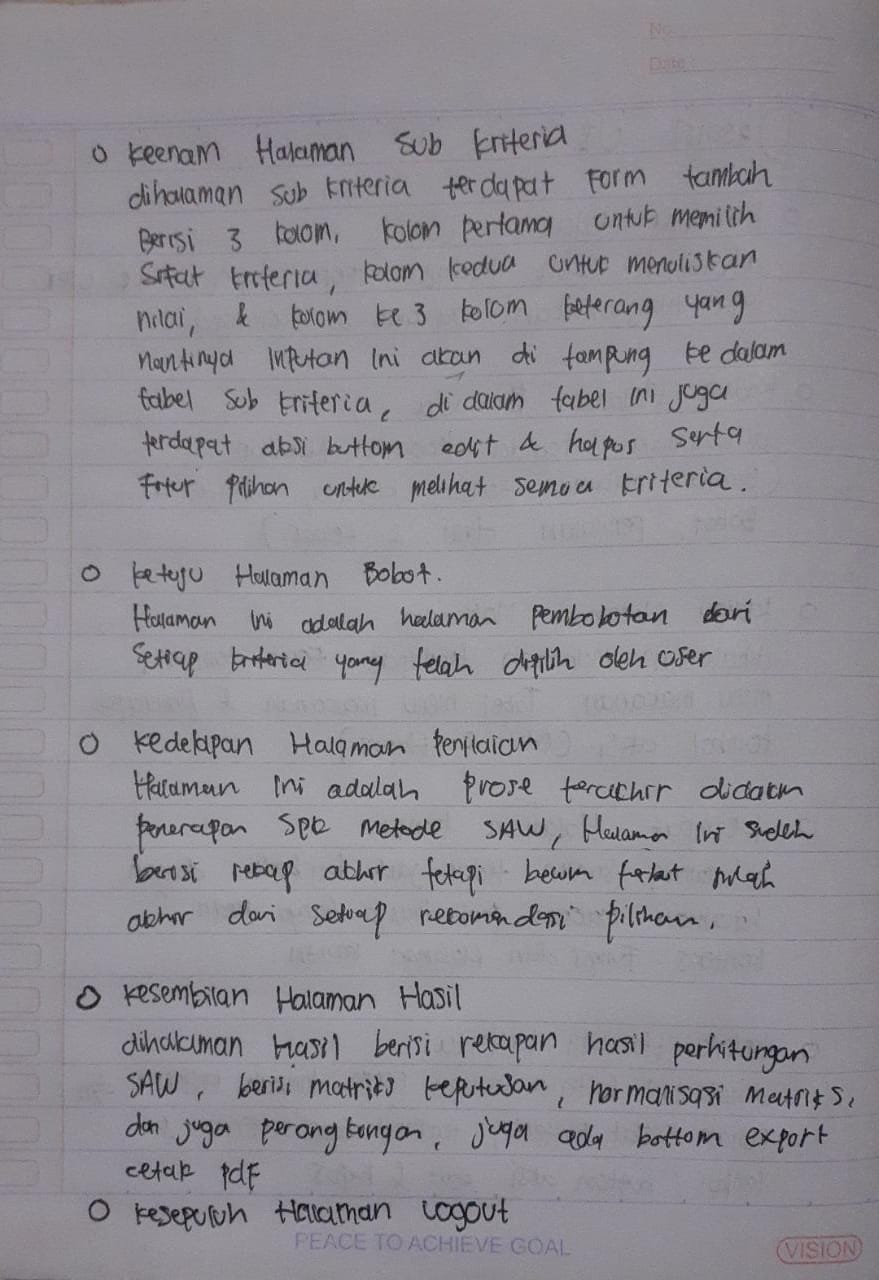 No.
Date
o keenam Halaman Sub kriteria
dihalaman sub kriteria terdapat Form tambah
Berisi 3 kolom, kolom pertama untuk memilih
Sifat kriteria, kolom kedua untuk menuliskan
nilai, & kolom ke 3 kolom keterang yang
nantinya Inputan ini akan di tampung ke dalam
tabel Sub kriteria, di dalam tabel ini juga
terdapat aksi buttom edit & hapus serta
Fitur pilihan untuk melihat semua kriteria.
o ketuju Halaman Bobot.
Halaman ini adalah halaman Pembobotan dari
Setiap kriteria yang telah dipilih oleh user
o kedelapan Halaman Penilaian
Halaman Ini adalah prose terakhir didalam
penerapan SPK metode SAW, Halaman Ini sudah
berisi rekap akhir tetapi belum
akhir dari setiap rekomendasi pilihan.
o kesembilan Halaman Hasil
dihalaman hasil berisi rekapan hasil perhitungan
SAW, berisi matriks keputusan, normalisasi Matriks,
dan juga perangkongan, juga ada bottom export
cetak pdf
o kesepuluh Halaman Logout
PEACE TO ACHIEVE GOAL
VISION